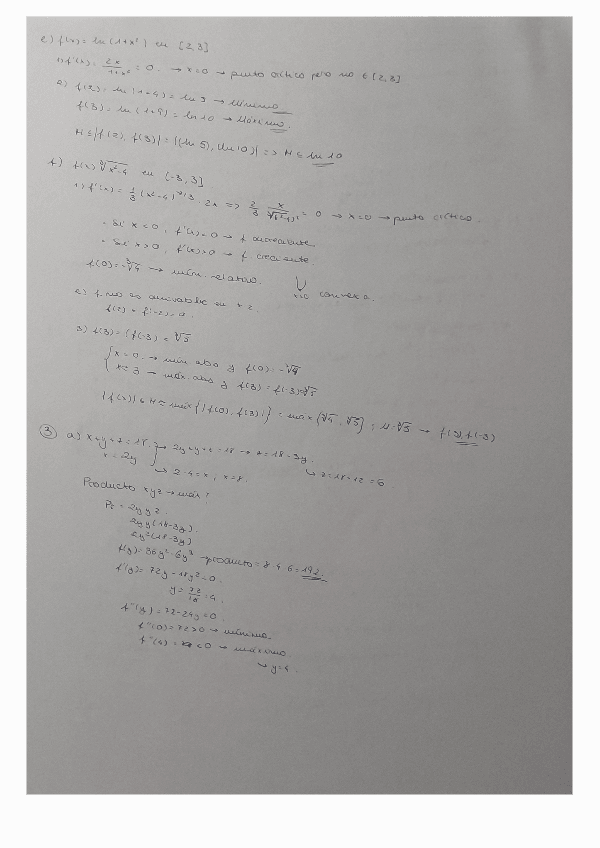 e) f(x) = ln (1+x²) en [2,3]
1) f'(x) = 2x/1+x² = 0. → x=0 → punto crítico pero no ∈ [2,3]
2) f(2) = ln (1+4) = ln 5 → Mínimo
f(3) = ln (1+9) = ln 10 → Máximo.
M ≤ |f(2), f(3)| = |(ln 5), (ln 10)| => M ≤ ln 10
f) f(x) = ∛x²-4 en [-3,3]
1) f'(x) = 1/3 (x²-4)^-2/3 · 2x => 2/3 x/∛(x²-4)² = 0 → x=0 → punto crítico.
- Si x<0, f'(x)<0 → f decreciente
- Si x>0, f'(x)>0 → f creciente.
f(0) = -∛4 → mín. relativo. x=0 convexa.
2) f no es derivable en ±2.
f(2) = f(-2) = 0.
3) f(3) = f(-3) = ∛5
x=0 → mín abs y f(0) = -∛4
x=±3 → máx. abs y f(3) = f(-3) = ∛5
|f(x)| ≤ M = máx {|f(0), f(3)|} = max {∛4, ∛5} ; M = ∛5 → f(3), f(-3)
3 a) x+y+z = 18. → 2y+y+z = 18 → z = 18-3y.
x = 2y → 2·4 = x, x=8. → z = 18-12 = 6.
Producto xyz → máx?
P = 2y y z.
2y y (18-3y).
2y² (18-3y)
f(y) = 36y² - 6y³ → producto = 8·4·6 = 192.
f'(y) = 72y - 18y² = 0.
y = 72/18 = 4.
f''(y) = 72-24y = 0.
f''(0) = 72 > 0 → mínimo.
f''(4) = < 0 → máximo.
→ y=4.